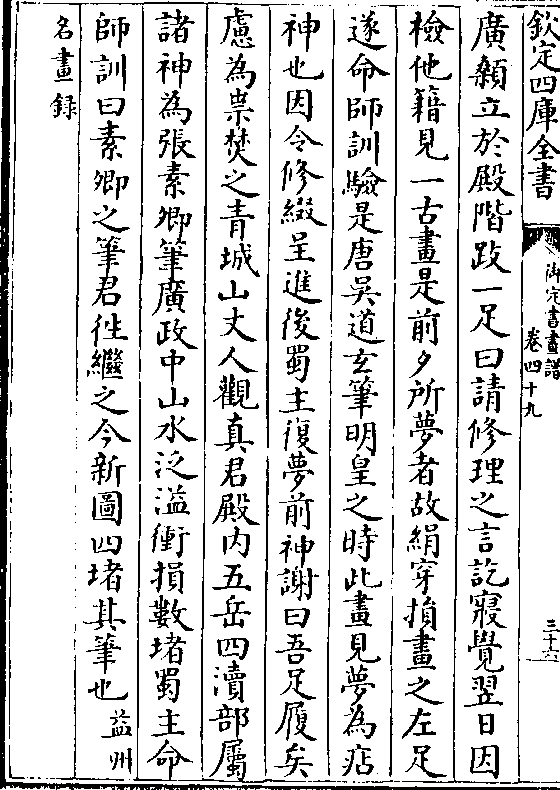 欽定四庫全書
御定書畫譜
卷四十九
三十六
廣顙立於殿階跂一足曰請修理之言訖寢覺翌日因
檢他籍見一古畫是前夕所夢者故絹穿損畫之左足
遂命師訓驗是唐吳道玄筆明皇之時此畫見夢為痁
神也因令修綴呈進後蜀主復夢前神謝曰吾足履矣
慮為祟焚之青城山丈人觀真君殿内五岳四瀆部屬
諸神為張素卿筆廣政中山水泛溢衝損數堵蜀主命
師訓曰素卿之筆君徃繼之今新圖四堵其筆也益州
名畫録